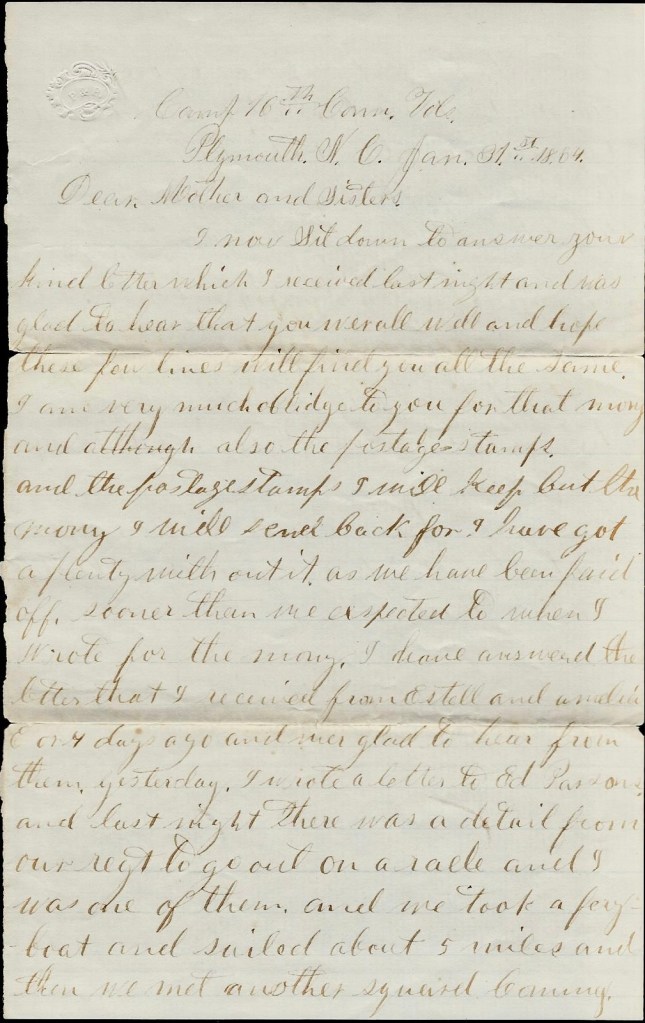 Camp 16th Conn. Vols.
Plymouth. N. C. Jan. 31st 1864.
Dear. Mother and Sisters.
I now Sit down to answer your
kind letter which I received last night and was
glad to hear that you wer all well and hope
these few lines will find you all the same.
I am very much oblidge to you for that mony
and although also the postage stamps.
and the postage stamps I will keep but the
mony I will send back for I have got
a plenty with out it. as we have been paid
off. sooner than we expected to when I
wrote for the mony. I have answerd the
letter that I received from Estell and amelia
3 or 4 days ago and wer glad to hear from
them. yesterday. I wrote a letter to Ed Parsons.
and last night there was a detail from
our regt to go out on a rade and I
was one of them. and we took a fery-
-boat and sailed about 5 miles and
then we met another squard Coming.